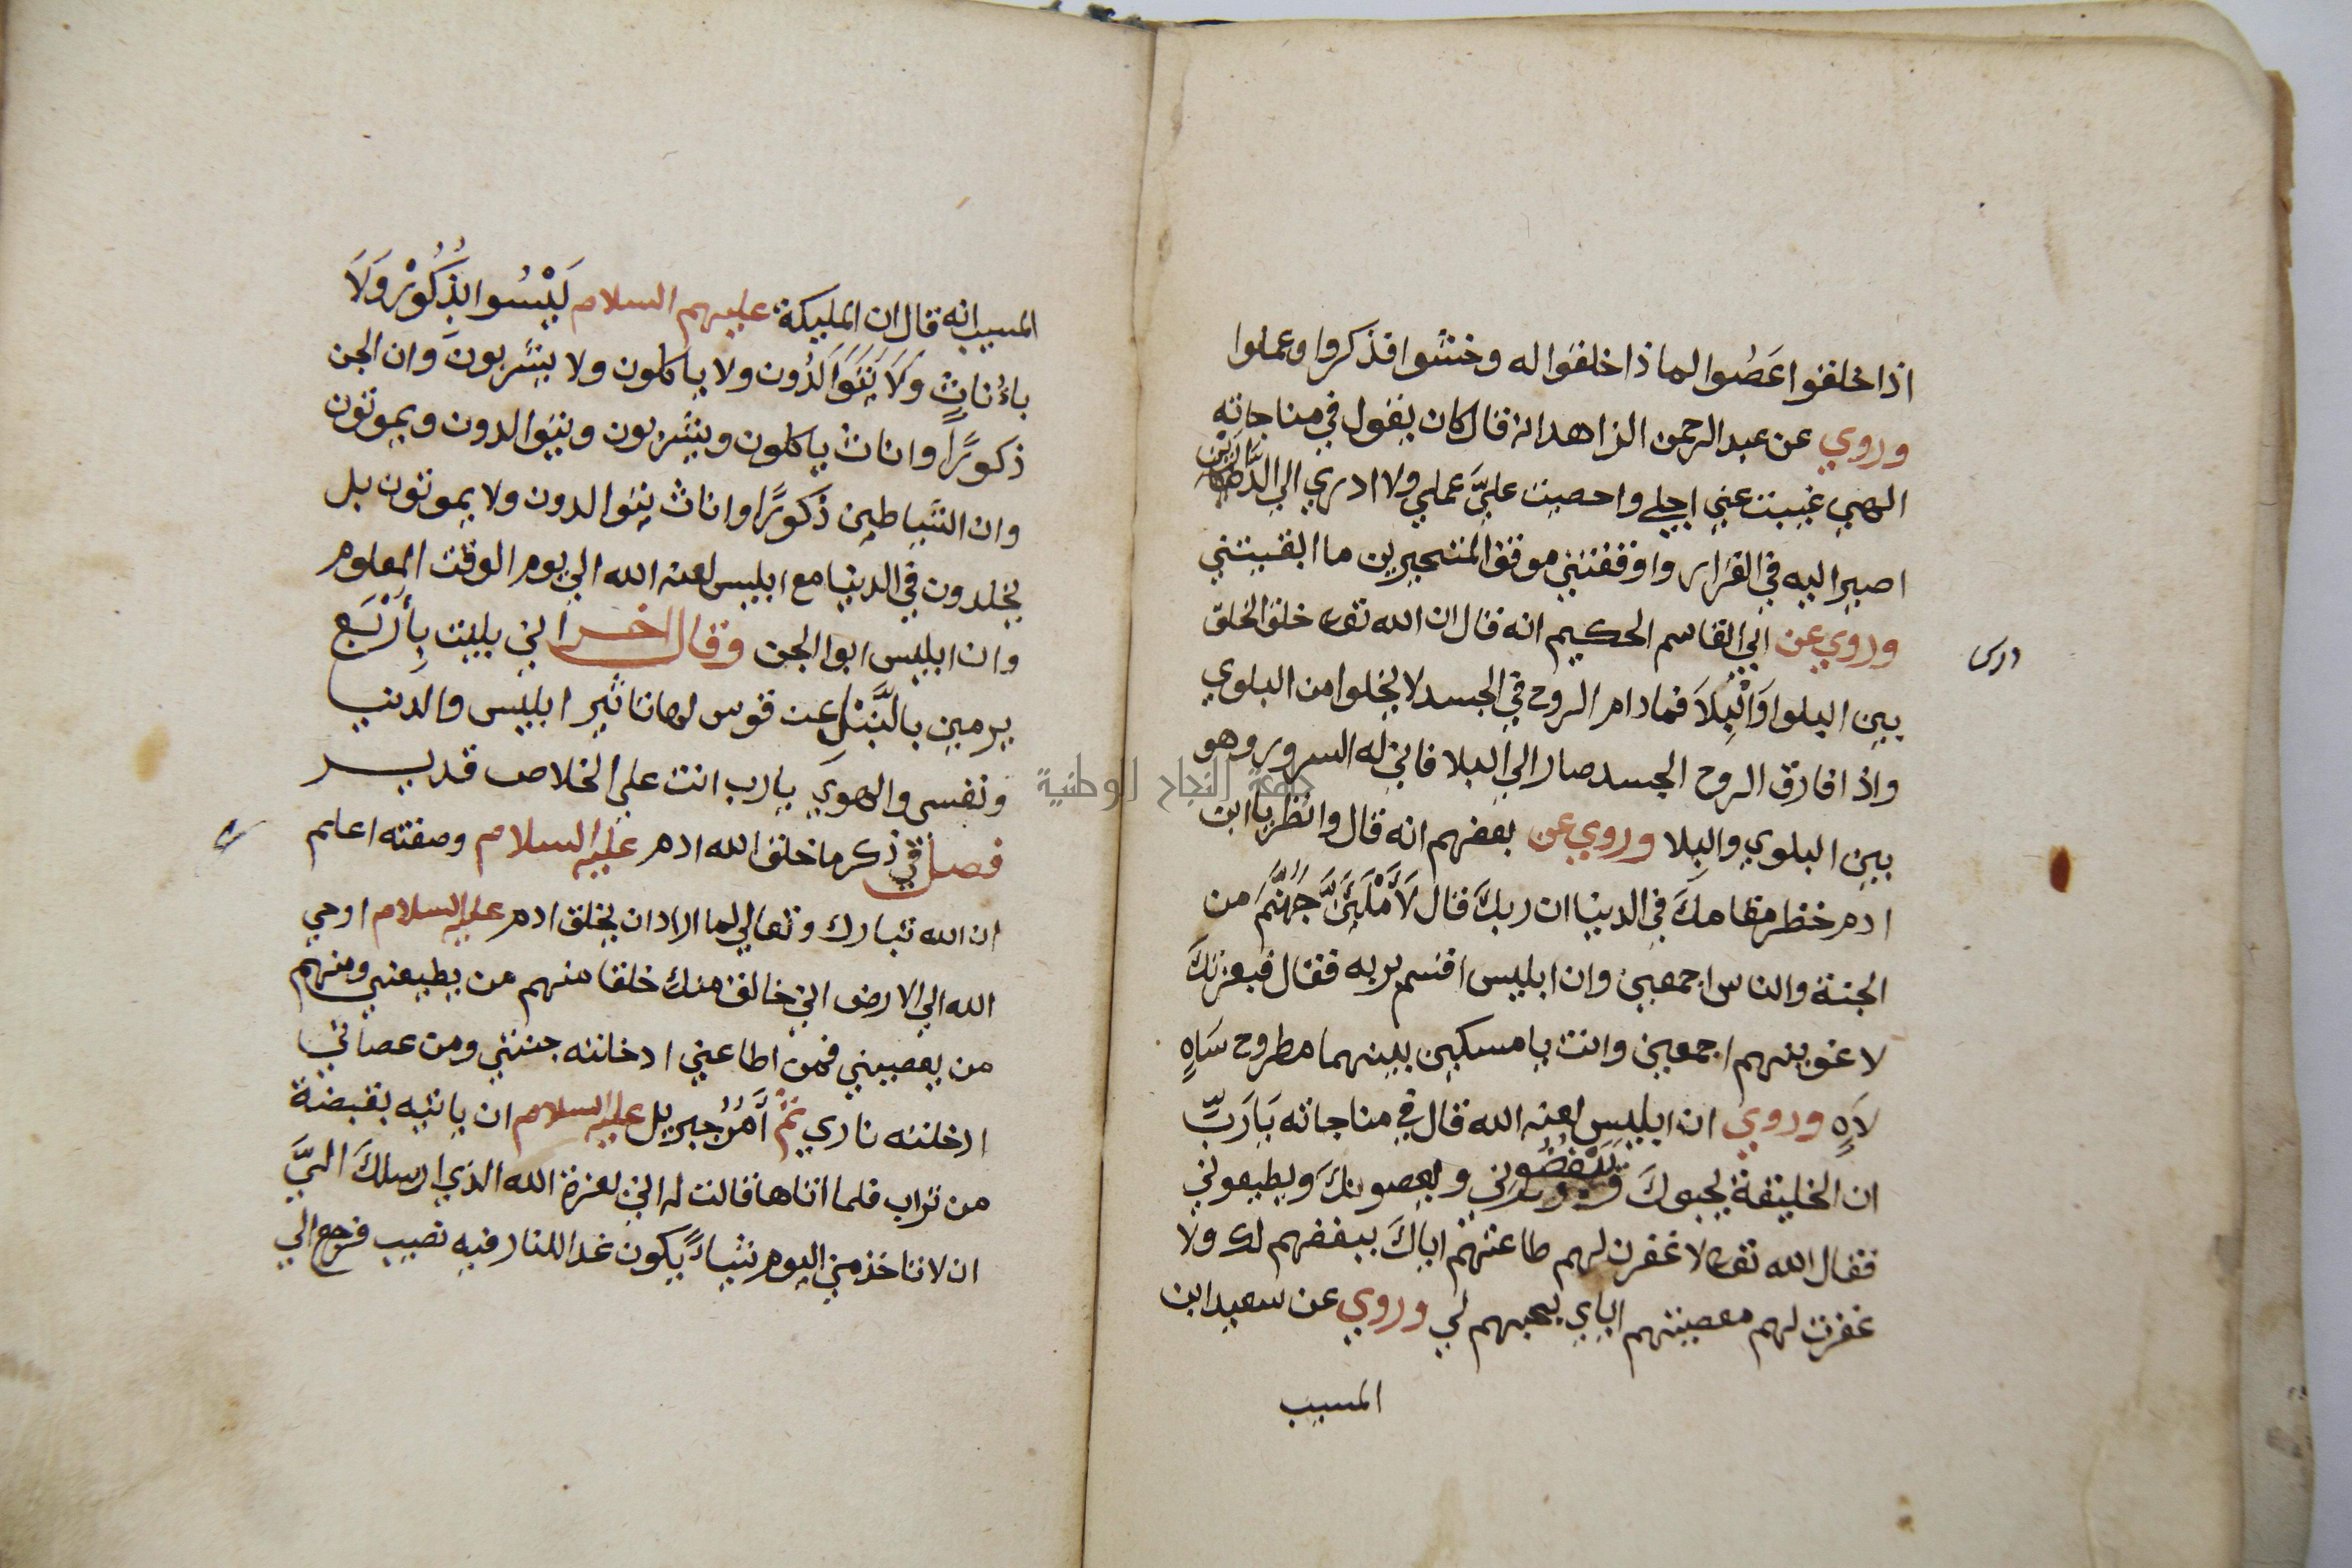 اذا خلقوا عَصُوا لما ذا خلقوا له وخشوا فذكروا وعملوا
وروي عن عبد الرحمن الزاهد انه قال كان يقول في مناجاته
الهي غيبت عني اجلي واحصيت عليَّ عملي ولا ادري الي الدَّارَيْن
اصير اليه في القرار واوقفتني موقف المتحيرين ما ابقيتني
وروي عن ابي القاسم الحكيم انه قال ان الله تعالى خلق الخلق
درى
بين البلوا وَالْبِلَا فمادام الروح في الجسد لا يخلوا من البلوي
واذا فارق الروح الجسد صار الي البلا فاني له السرور وهو
بين البلوي والبلا وروي عن بعضهم انه قال وانظر يا ابن
ادم خطر مقامكَ في الدنيا ان ربكَ قال لَأَمْلَئَنَّ جَهَنَّمَ من
الجنة والناس اجمعين وان ابليس اقسم بربه فقال فبعزتكَ
لاغوينهم اجمعين وانت يا مسكين بينهما مطروح سَاهٍ
لَاهٍ وروي ان ابليس لعنه الله قال في مناجاته يَارَبِّ
ان الخليقة يحبوكَ ويبغضوني ويعصونكَ ويطيعوني
فقال الله تعالى لاغفرن لهم طاعتهم اياكَ ببغضهم لك ولا
غفرت لهم معصيتهم اياي بحبهم لي وروي عن سعيد ابن
المسيب
المسيب انه قال ان المليكة عليهم السلام لَيْسُوا بِذُكُورٌ وَلَا
باءُناثٍ وَلَا يَتَوَالَدُون ولا ياكلون ولا يشربون وان الجن
ذكورًا واناث ياكلون ويشربون ويتوالدون ويموتون
وان الشياطين ذكورًا واناث يتوالدون ولا يموتون بل
يخلدون في الدنيا مع ابليس لعنه الله الي يوم الوقت المعلوم
وان ابليس ابوا الجن وقال اخر اني بليت بِأَرْبَعِ
يرمين بالنَّبْلِ عن قوس لها تاثير ابليس والدنيا
ونفسي والهوي يارب انت علي الخلاص قدير
فصل في ذكر ما خلق الله ادم عليه السلام وصفته اعلم
ان الله تبارك وتعالي لما اراد ان يخلق ادم عليه السلام اوحي
الله الي الارض اني خالق منك خلقا منهم من يطيعني ومنهم
من يعصيني فمن اطاعني ادخلته جنتي ومن عصاني
ادخلته ناري ثُمَّ أَمَرَ جبريل عليه السلام ان ياتيه بقبضة
من تراب فلما اتاها قالت له اني لعزة الله الذي ارسلكَ اليَّ
ان لا تاخذ مني اليوم شياءً يكون غدا للنار فيه نصيب فرجع الي
جامعة النجاح الوطنية